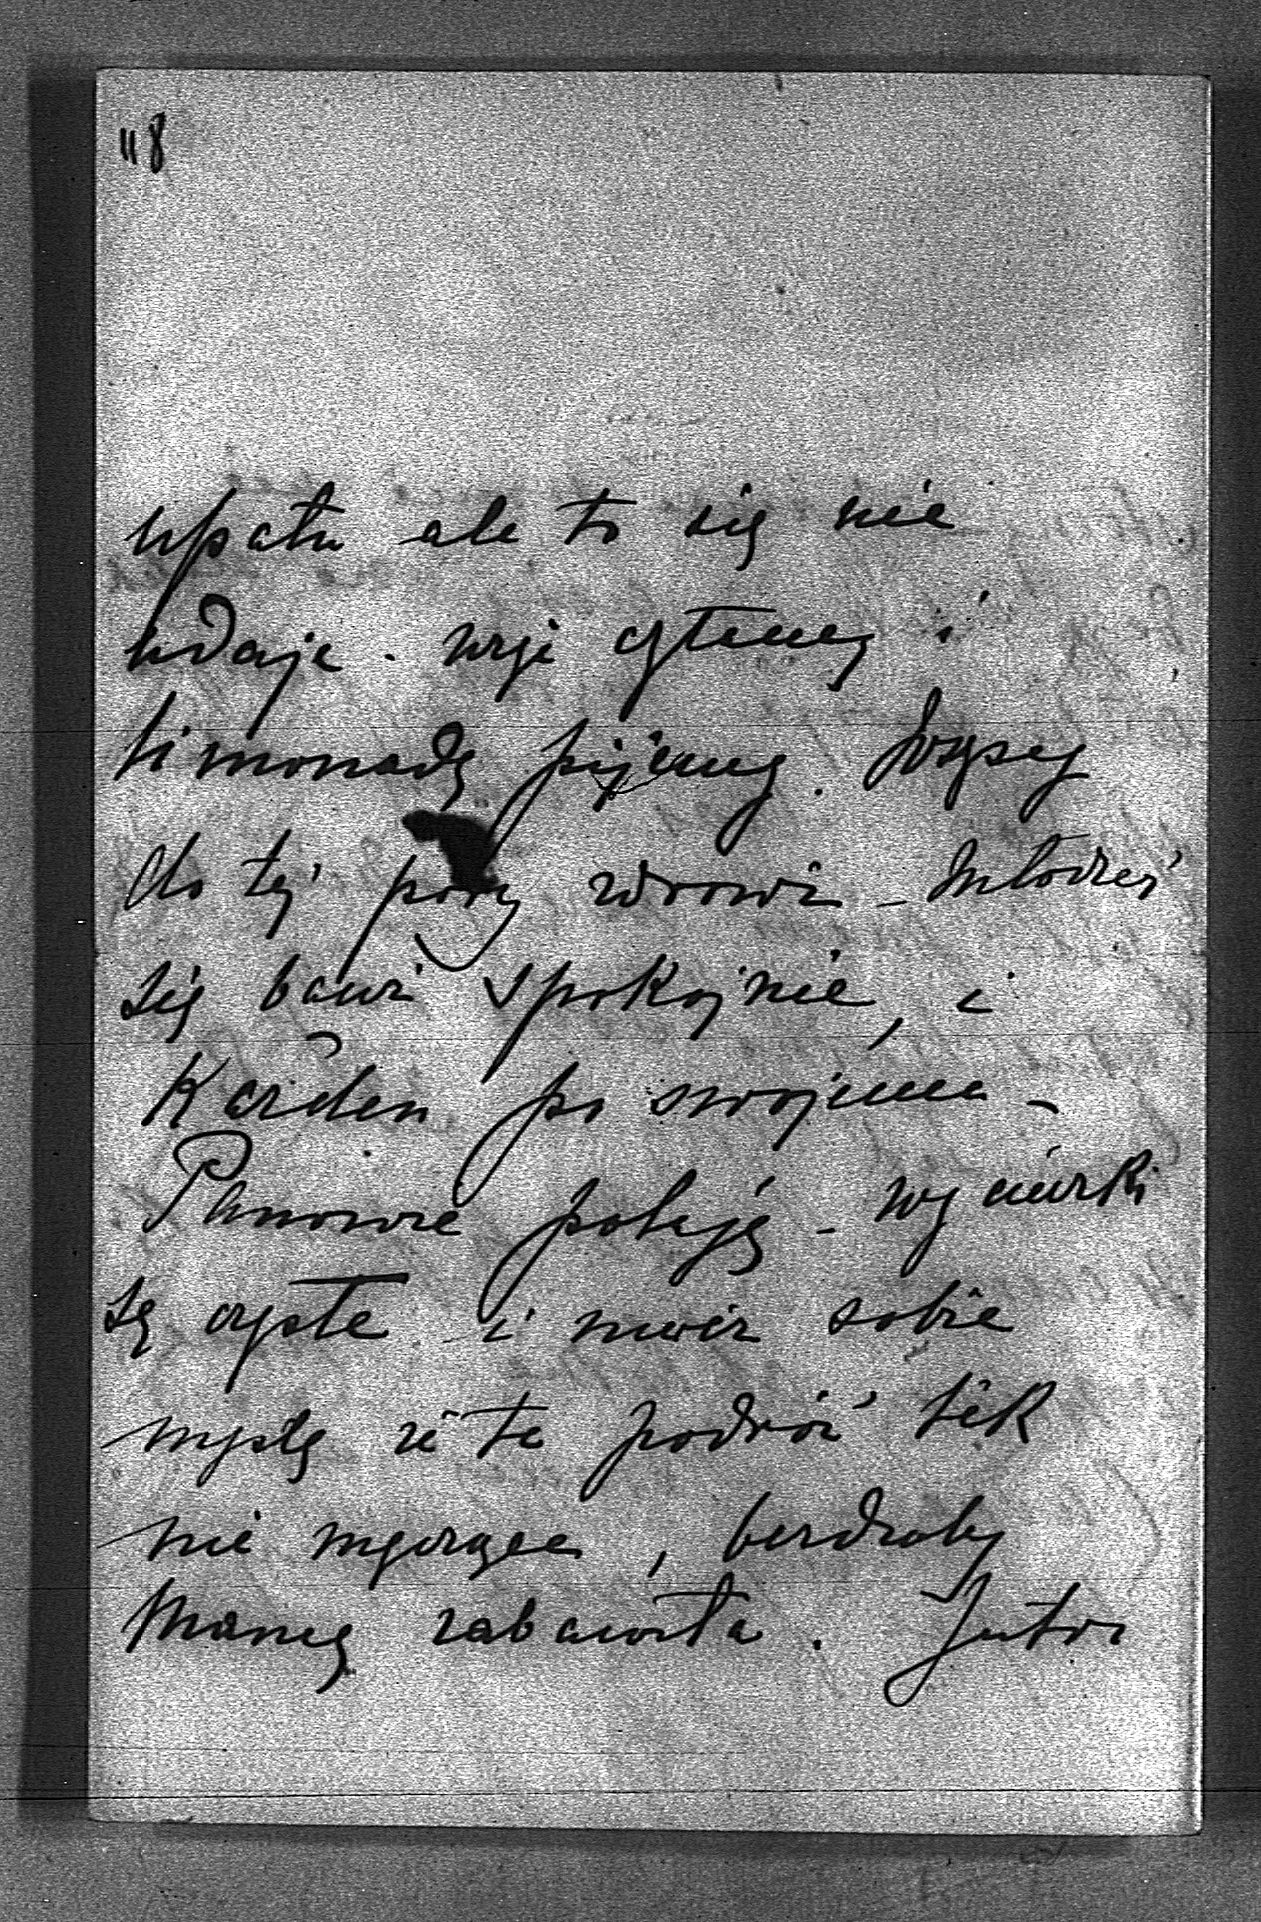 118
upału ale to się nie
udaje. więc czytamy i
limonadę pijemy. Wszyscy
do tej pory zdrowi - Młodzież
się bawi spokojnie, i
Każden po swojemu -
Panowie polują -
są czyste i mówię sobie
myślę że ta podróż tak
nie męcząca, bardzoby
Mamę zabawiła. Jutro